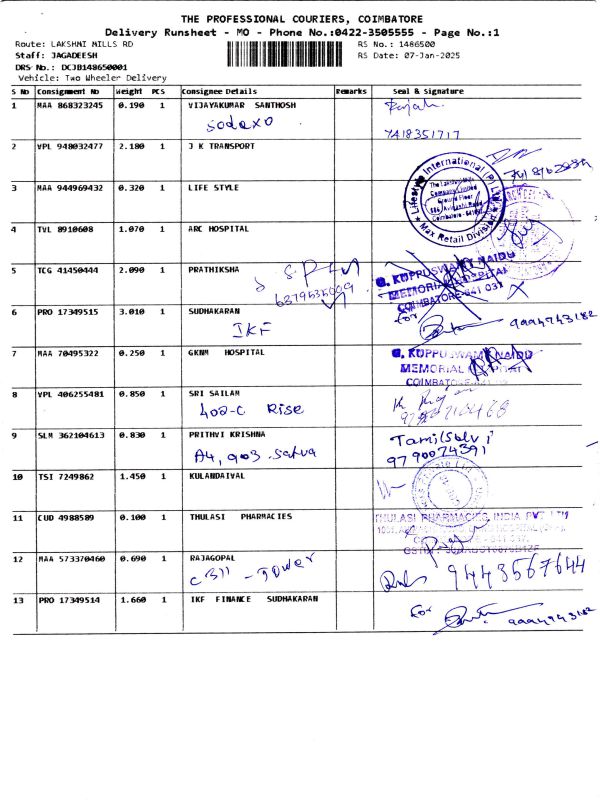 THE PROFESSIONAL COURIERS, COIMBATORE
Delivery Runsheet - MO - Phone No.:0422-3505555 - Page No.:1
Route: LAKSHMI MILLS RD RS No.: 1486500
Staff: JAGADEESH RS Date: 07-Jan-2025
DRS No.: DCJB148650001
Vehicle: Two Wheeler Delivery
S No Consignment No Weight PCS Consignee Details Remarks Seal & Signature
1 MAA 868323245 0.190 1 VIJAYAKUMAR SANTHOSH
Sodexo 7418351717
2 VPL 948032477 2.180 1 J K TRANSPORT
3 MAA 944969432 0.320 1 LIFE STYLE
Lifestyle International (P) Ltd
Max Retail Division
4 TVL 8910608 1.070 1 ARC HOSPITAL
5 TCG 41450444 2.090 1 PRATHIKSHA
G. KUPPUSWAMY NAIDU
MEMORIAL HOSPITAL
COIMBATORE-641 037
6 PRO 17349515 3.010 1 SUDHAKARAN
IKF for 9994943182
7 MAA 70495322 0.250 1 GKNM HOSPITAL
G. KUPPUSWAMY NAIDU
MEMORIAL HOSPITAL
8 VPL 406255481 0.850 1 SRI SAILAM
402-C Rise
9 SLM 362104613 0.830 1 PRITHVI KRISHNA
A4, 903. Satva
Tamilselvi
9790074391
10 TSI 7249862 1.450 1 KULANDAIVAL
11 CUD 4988589 0.100 1 THULASI PHARMACIES
THULASI PHARMACIES INDIA PVT LTD
12 MAA 573370460 0.690 1 RAJAGOPAL
C311 - Tower 9443567644
13 PRO 17349514 1.660 1 IKF FINANCE SUDHAKARAN
for 9994943182